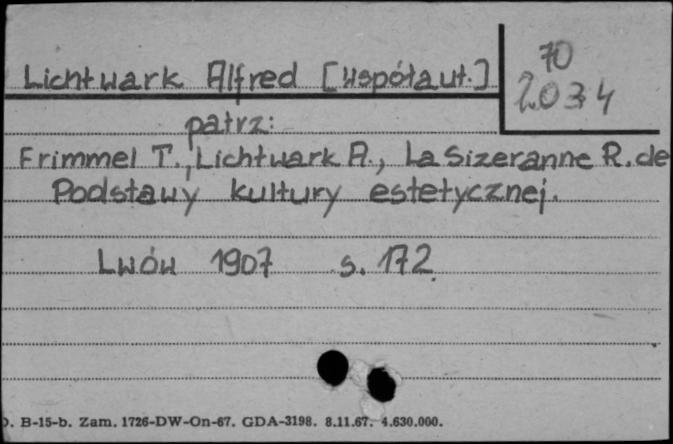 Lichtwark Alfred [współaut.]
70
2034
patrz:
Frimmel T., Lichtwark A., La Sizeranne R. de
Podstawy kultury estetycznej.
Lwów 1907 s. 172
). B-15-b. Zam. 1726-DW-On-67. GDA-3198. 8.11.67. 4.630.000.